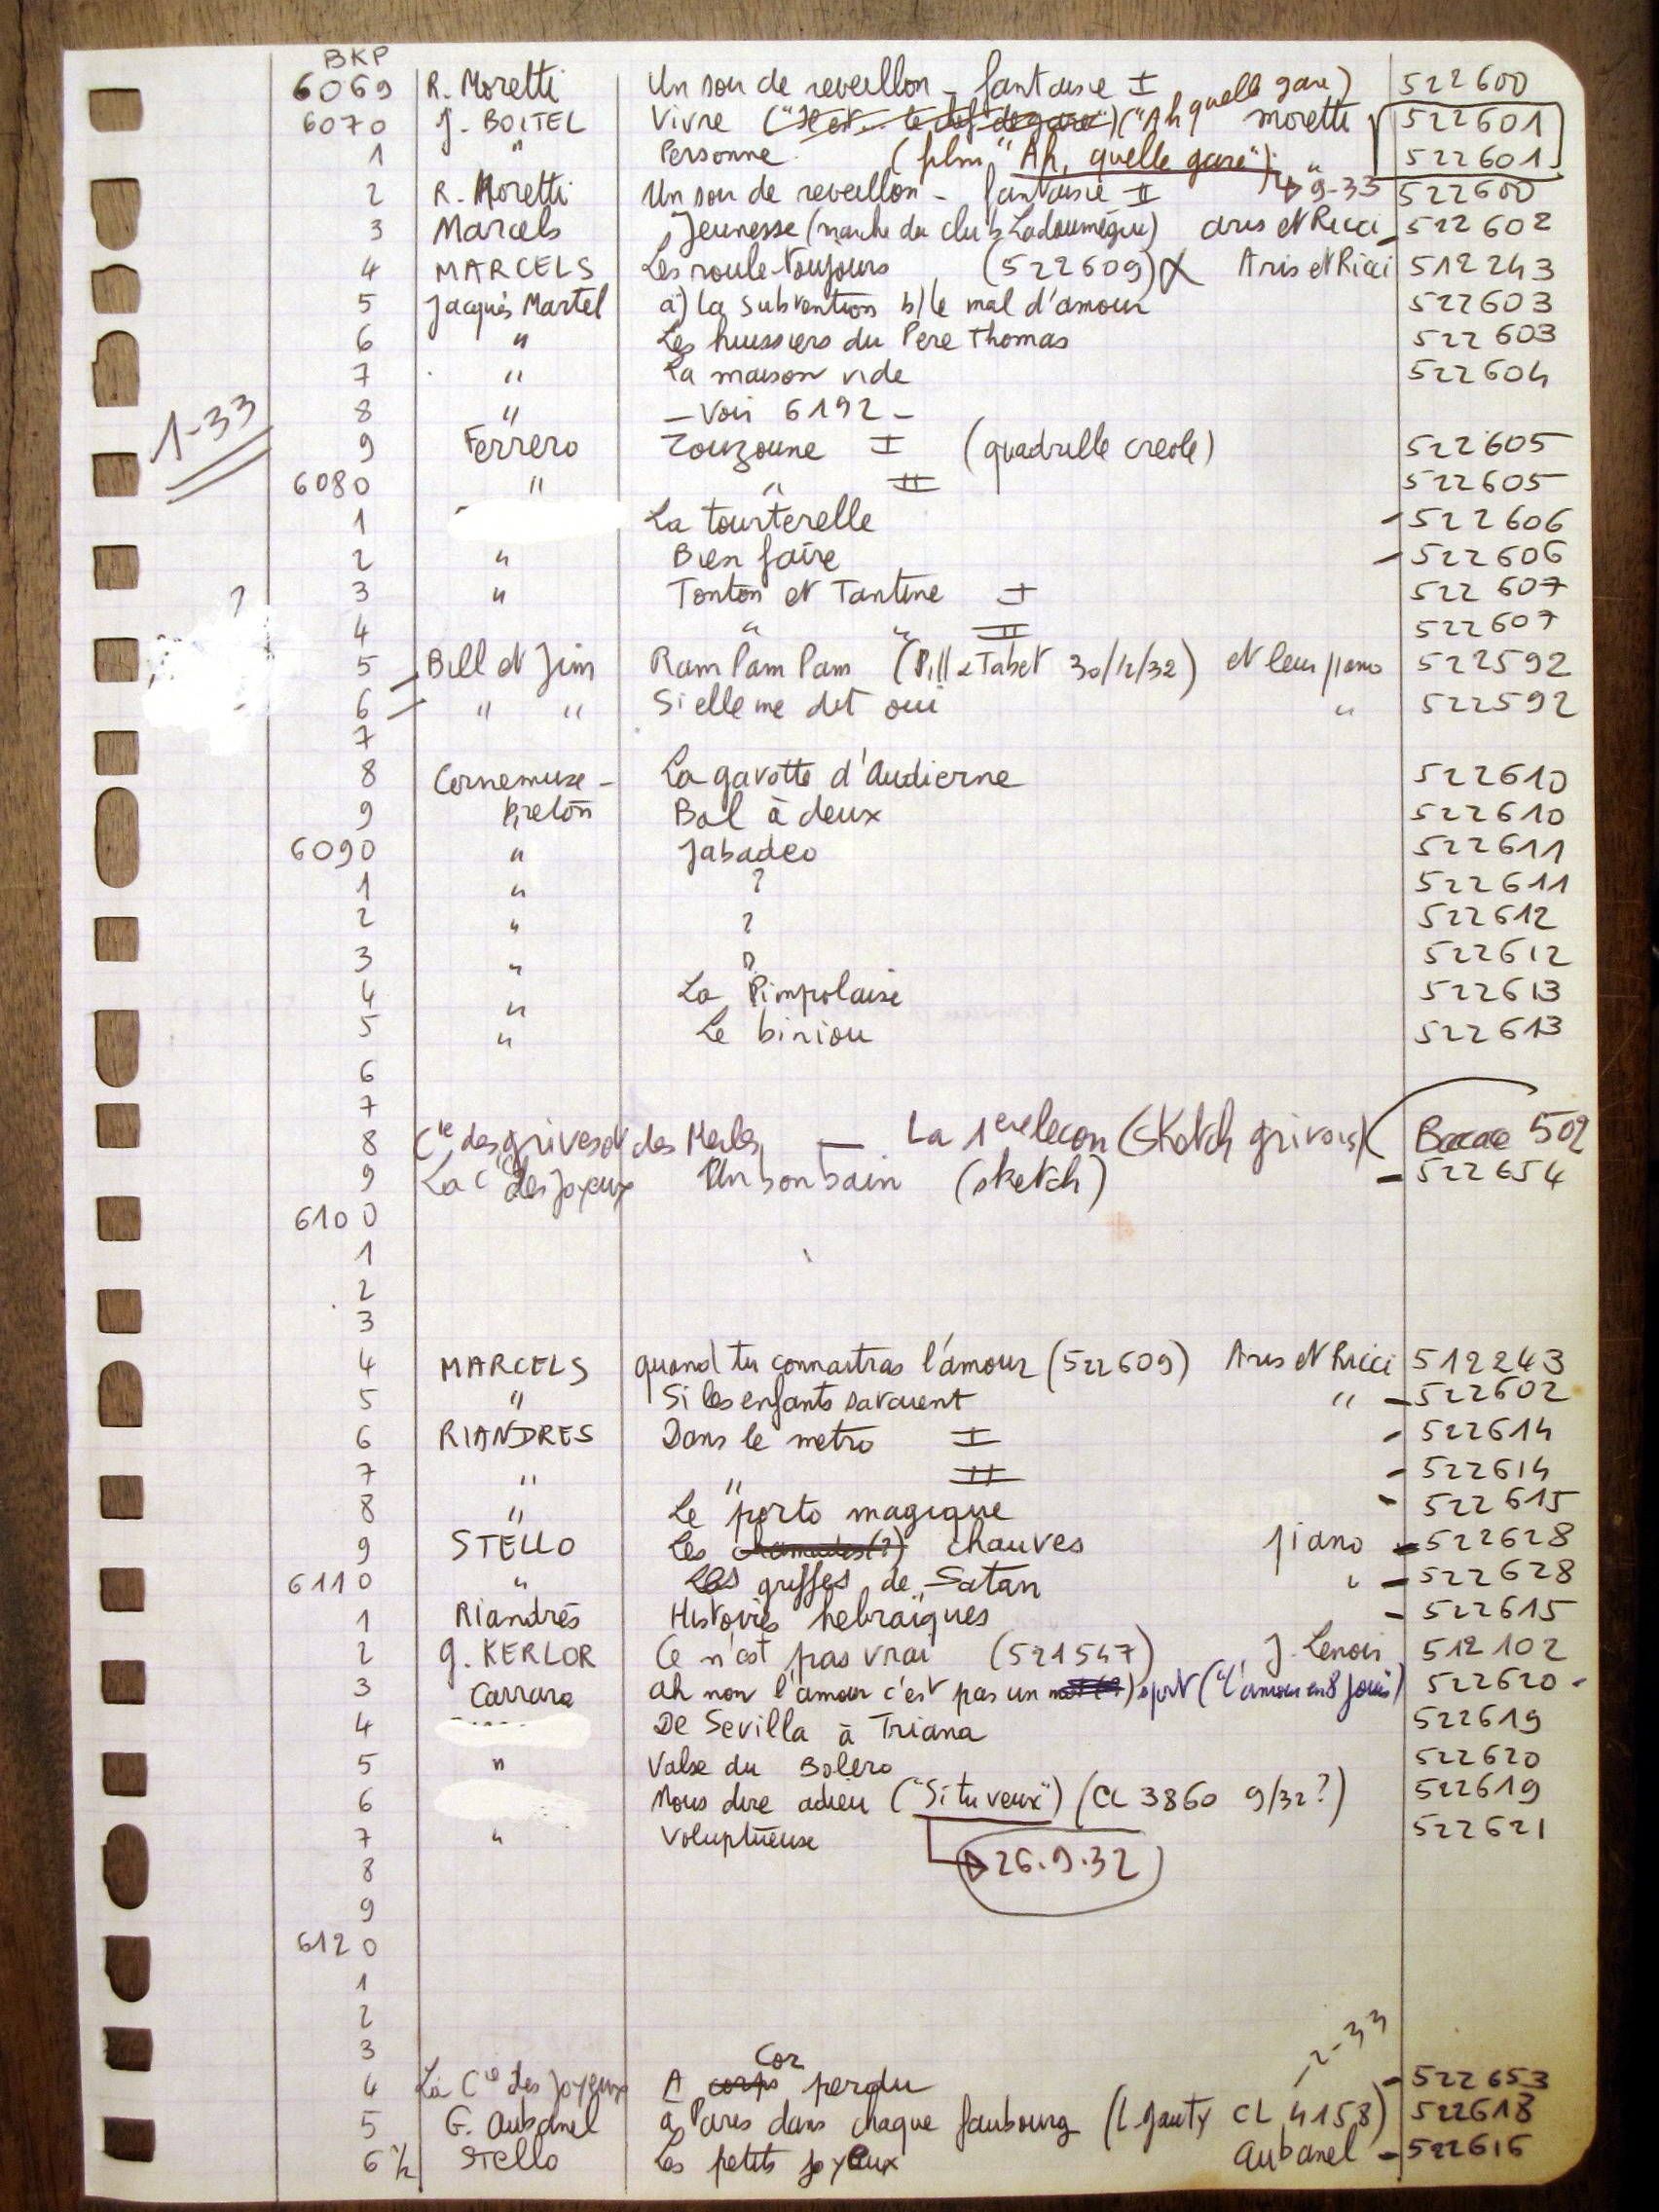 BKP
6069 R. Moretti Un soir de reveillon - fantaisie I 522600
6070 J. BOITEL Vivre ("Ah quelle gare) moretti 522601
1 " Personne (film "Ah, quelle gare") " 522601
2 R. Moretti Un soir de reveillon - fantaisie II 9-33 522600
3 Marcels Jeunesse (marche du club Ladoumègue) Aris et Ricci 522602
4 MARCELS Les roule-toujours (522609) Aris et Ricci 512243
5 Jacques Martel a) la subvention b) le mal d'amour 522603
6 " Les huissiers du Pere Thomas 522603
7 " La maison vide 522604
8 " - Voir 6192 -
1-33
9 Ferrero Zouzoune I (quadrille creole) 522605
6080 " " II 522605
1 La tourterelle 522606
2 " Bien faire 522606
? 3 " Tonton et Tantine I 522607
4 " " II 522607
5 Bill et Jim Ram Pam Pam (Pill & Tabet 30/12/32) et leur piano 522592
6 " " Si elle me dit oui " 522592
7
8 Cornemuse - La gavotte d'Audierne 522610
9 Breton Bal à deux 522610
6090 " Jabadeo 522611
1 " ? 522611
2 " ? 522612
3 " ? 522612
4 " La Pimpolaise 522613
5 " Le biniou 522613
6
7
8 Cie des grives et des Merles — La 1ere lecon (sketch grivois) 502
9 La Cie des Joyeux Un bon bain (sketch) 522654
6100
1
2
3
4 MARCELS quand tu connaitras l'amour (522609) Aris et Ricci 512243
5 " Si les enfants savaient " 522602
6 RIANDRES Dans le metro I 522614
7 " " II 522614
8 " Le porto magique 522615
9 STELLO Les chauves piano 522628
6110 " Les griffes de Satan " 522628
1 Riandrès Histoires hebraïques 522615
2 G. KERLOR Ce n'est pas vrai (521547) J. Lenoir 512102
3 Carrara Ah non l'amour c'est pas un sport ("L'amour en 8 jours) 522620
4 De Sevilla à Triana 522619
5 " Valse du Bolero 522620
6 Nous dire adieu ("Si tu veux") (CL 3860 9/32?) 522619
7 " Voluptueuse 522621
26.9.32
8
9
6120
1
2
3
2-33
Cor
4 La Cie des Joyeux A corps perdu 522653
5 G. Aubanel à Paris dans chaque faubourg (L. Gauty CL 4158) 522618
6 1/2 Stello Les petits joyeux Aubanel 522616